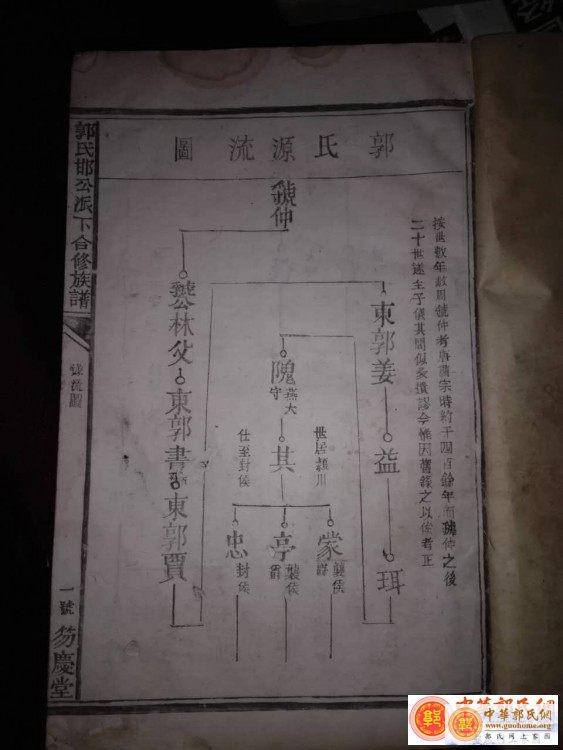 郭氏源流圖
按世數年數周虢仲考唐肅宗時約千四百餘年而虢仲之後
二十世遂生子儀其間似多遺謬今惟因舊錄之以俟考正
虢仲
東郭姜
益
珥
隗
燕大
守
其
世居潁川
仕至封侯
蒙
襲侯
亭
襲侯
忠
封侯
虢公林父
東郭書
東郭賈
郭氏邯公派下合修族譜
源流圖
一號
笏慶堂
中華郭氏網
中華郭氏網
www.guohome.org
郭氏網上家園